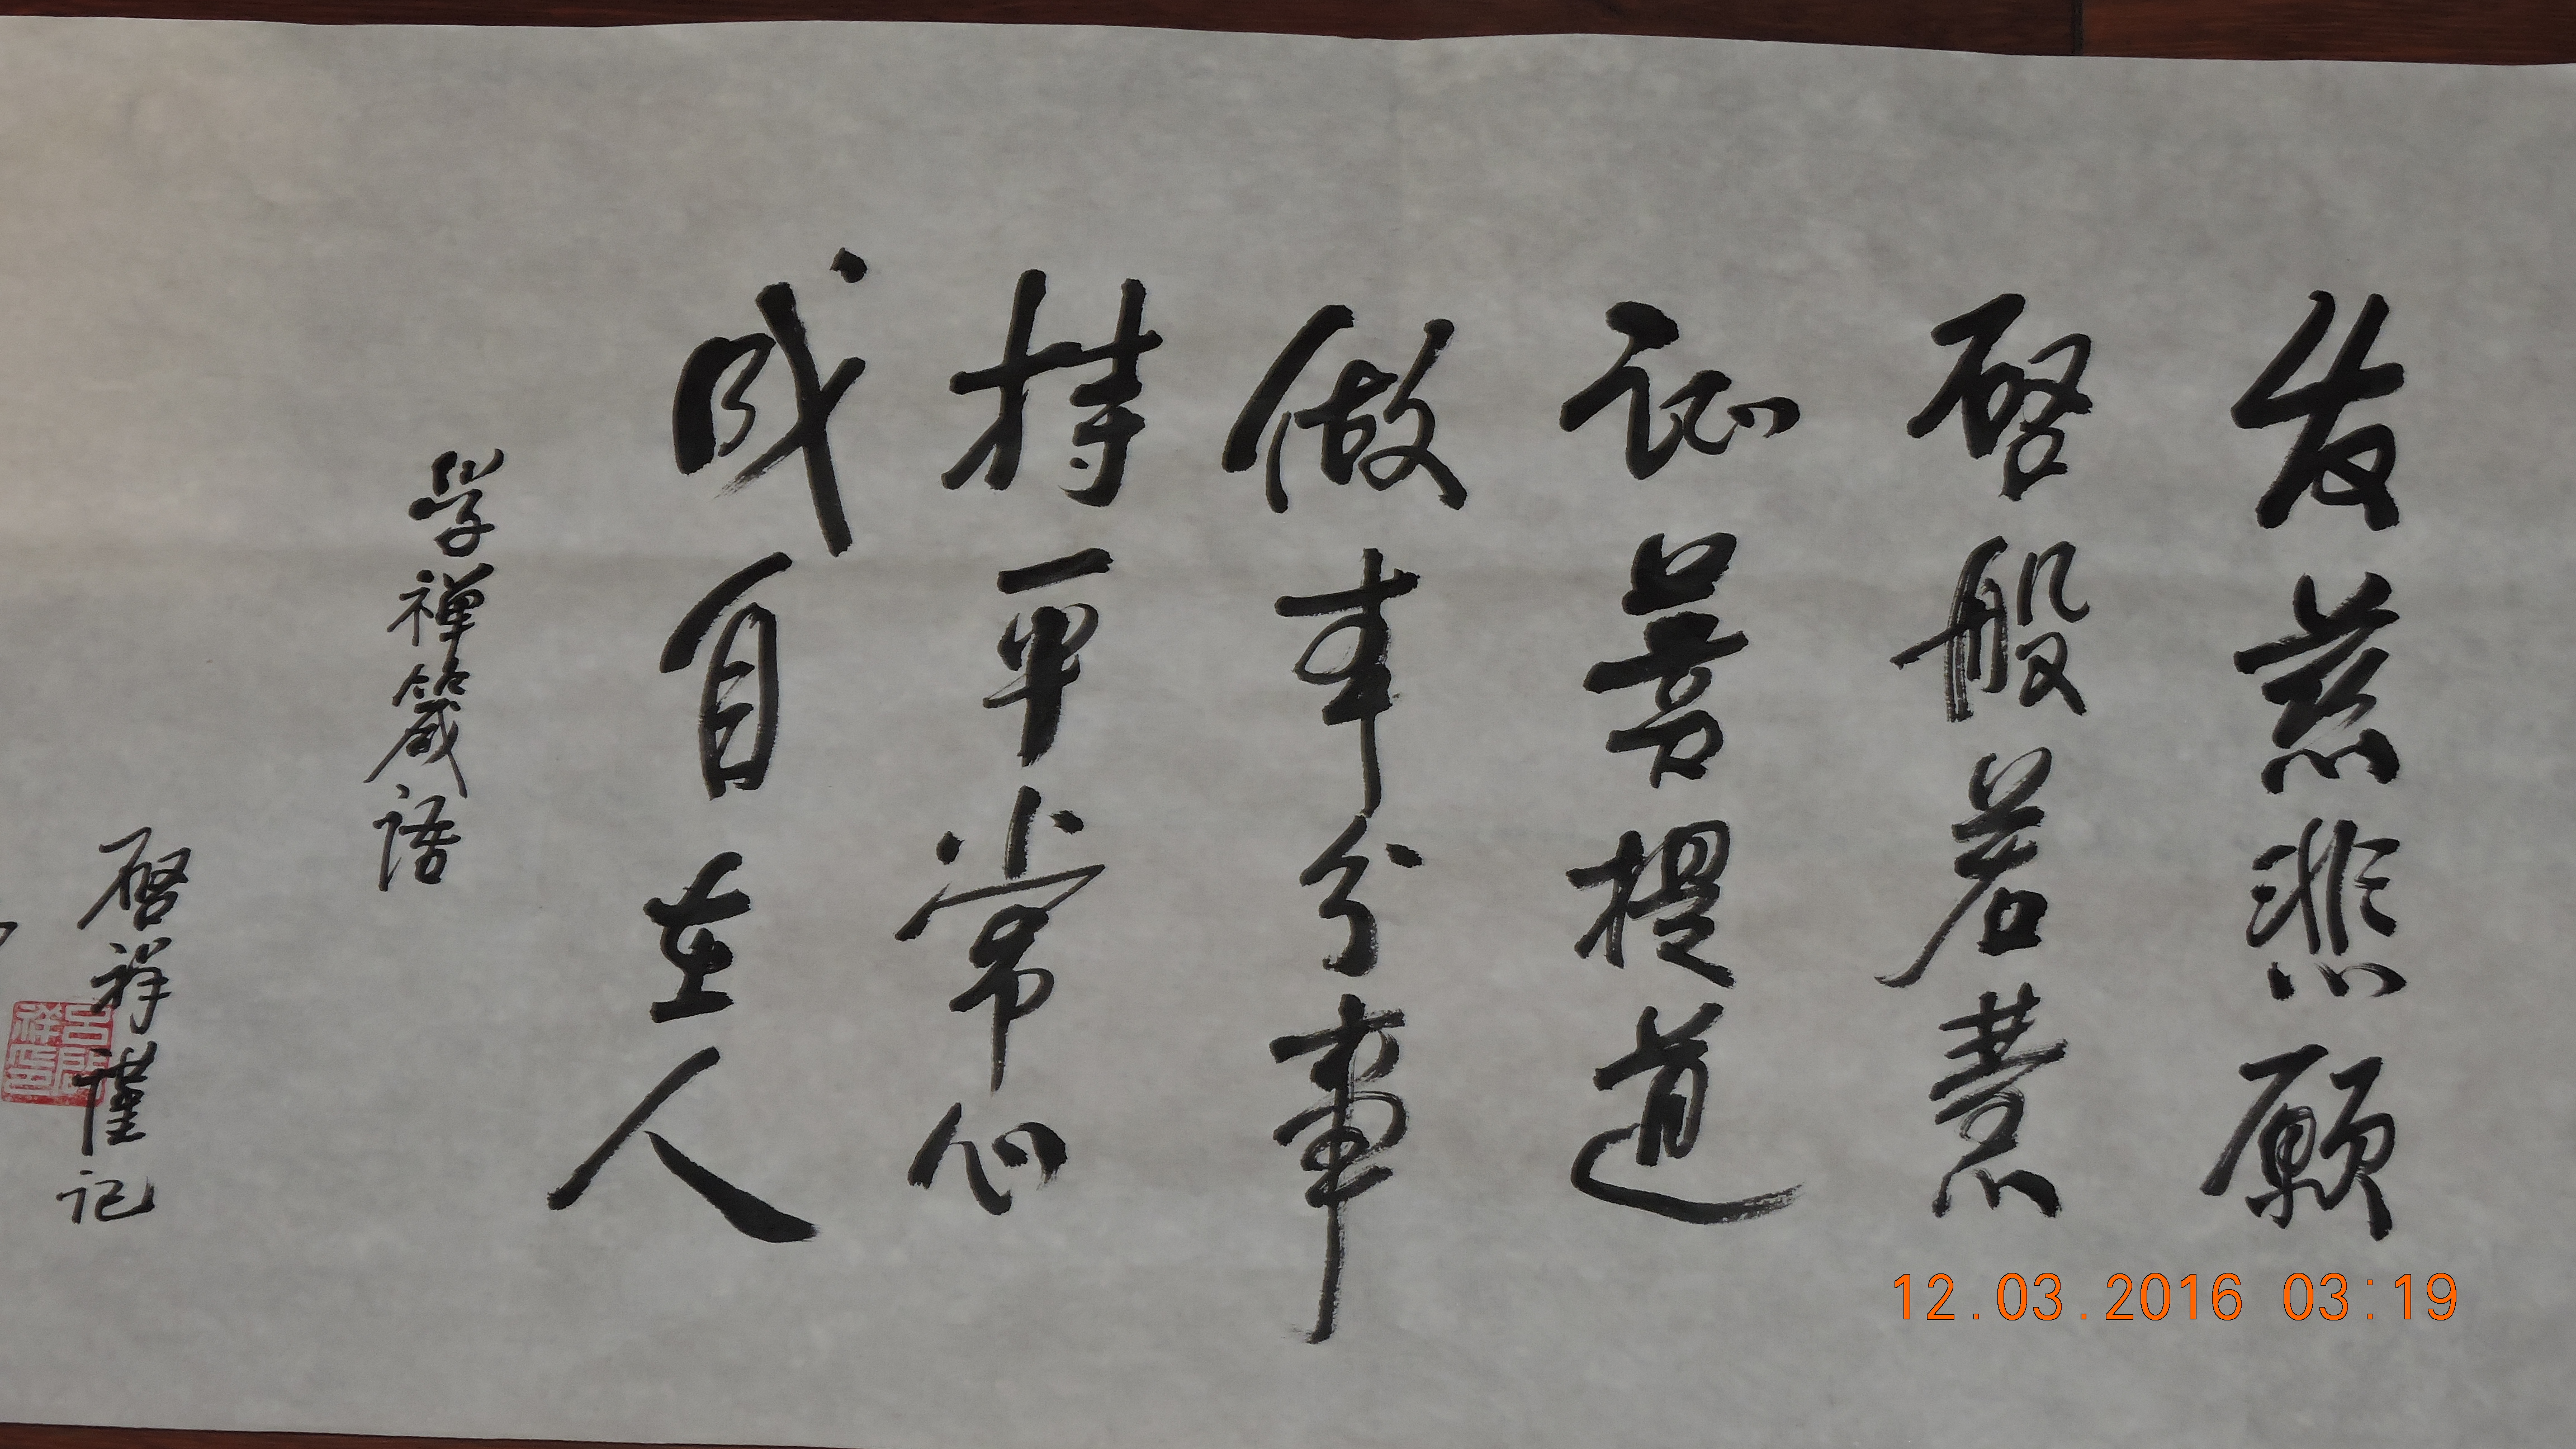 发慈悲愿
启般若慧
证菩提道
做本分事
持平常心
成自在人
学禅箴语
启祥谨记
吕启祥印
12.03.2016 03:19